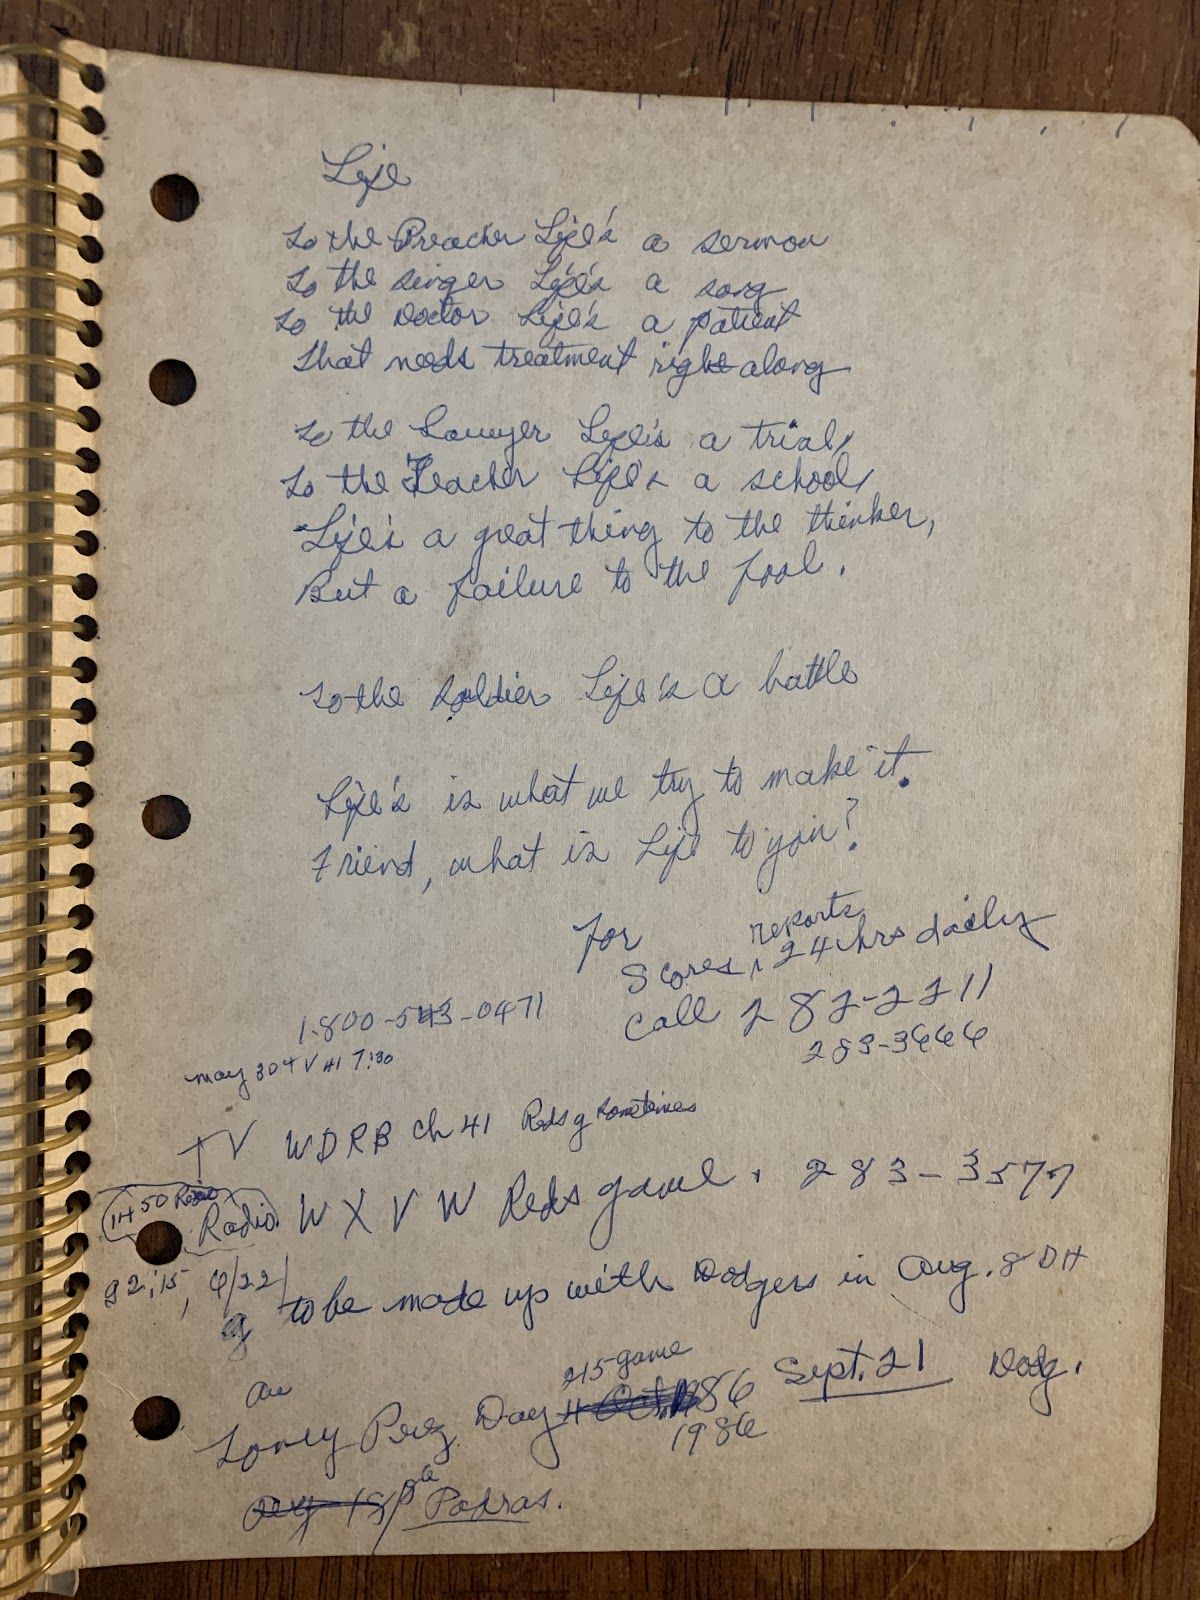 Life
To the Preacher Life's a sermon
To the singer Life's a song
To the Doctor Life's a patient
That needs treatment right along
To the Lawyer Life's a trial,
To the Teacher Life's a school,
Life's a great thing to the thinker,
But a failure to the fool.
To the soldier Life's a battle
Life's is what we try to make it.
Friend, what is Life to you?
For
reports
Scores, 24 hrs daily
Call 282-2211
283-3666
1-800-543-0471
may 30 TV 41 7:30
TV WDRB Ch 41 Reds g sometimes
1450 Radio
Radio WXVW Reds game. 283-3577
g 2:15, 6/22/
g to be made up with Dodgers in Aug. 8 DH
215 game
Toney Perez Day 86 Sept. 21 Dodg.
1986
Padras.